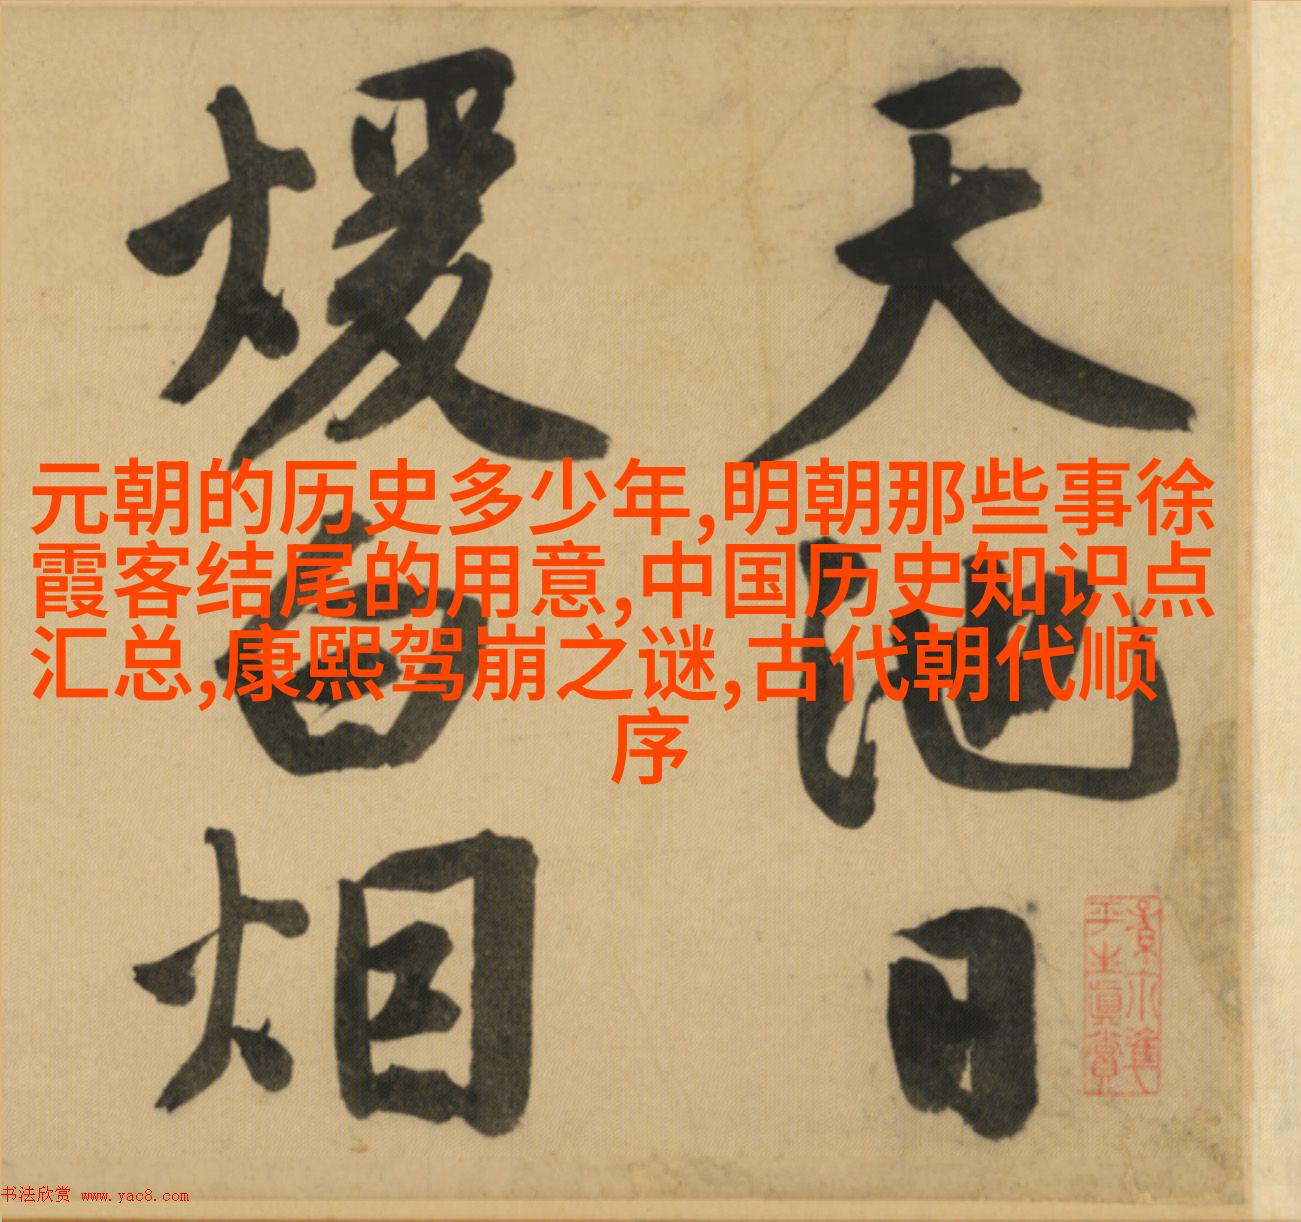 天池日
暖白烟
元朝的历史多少年,明朝那些事徐
霞客结尾的用意,中国历史知识点
汇总,康熙驾崩之谜,古代朝代顺
序
书法欣赏 www.yac8.com